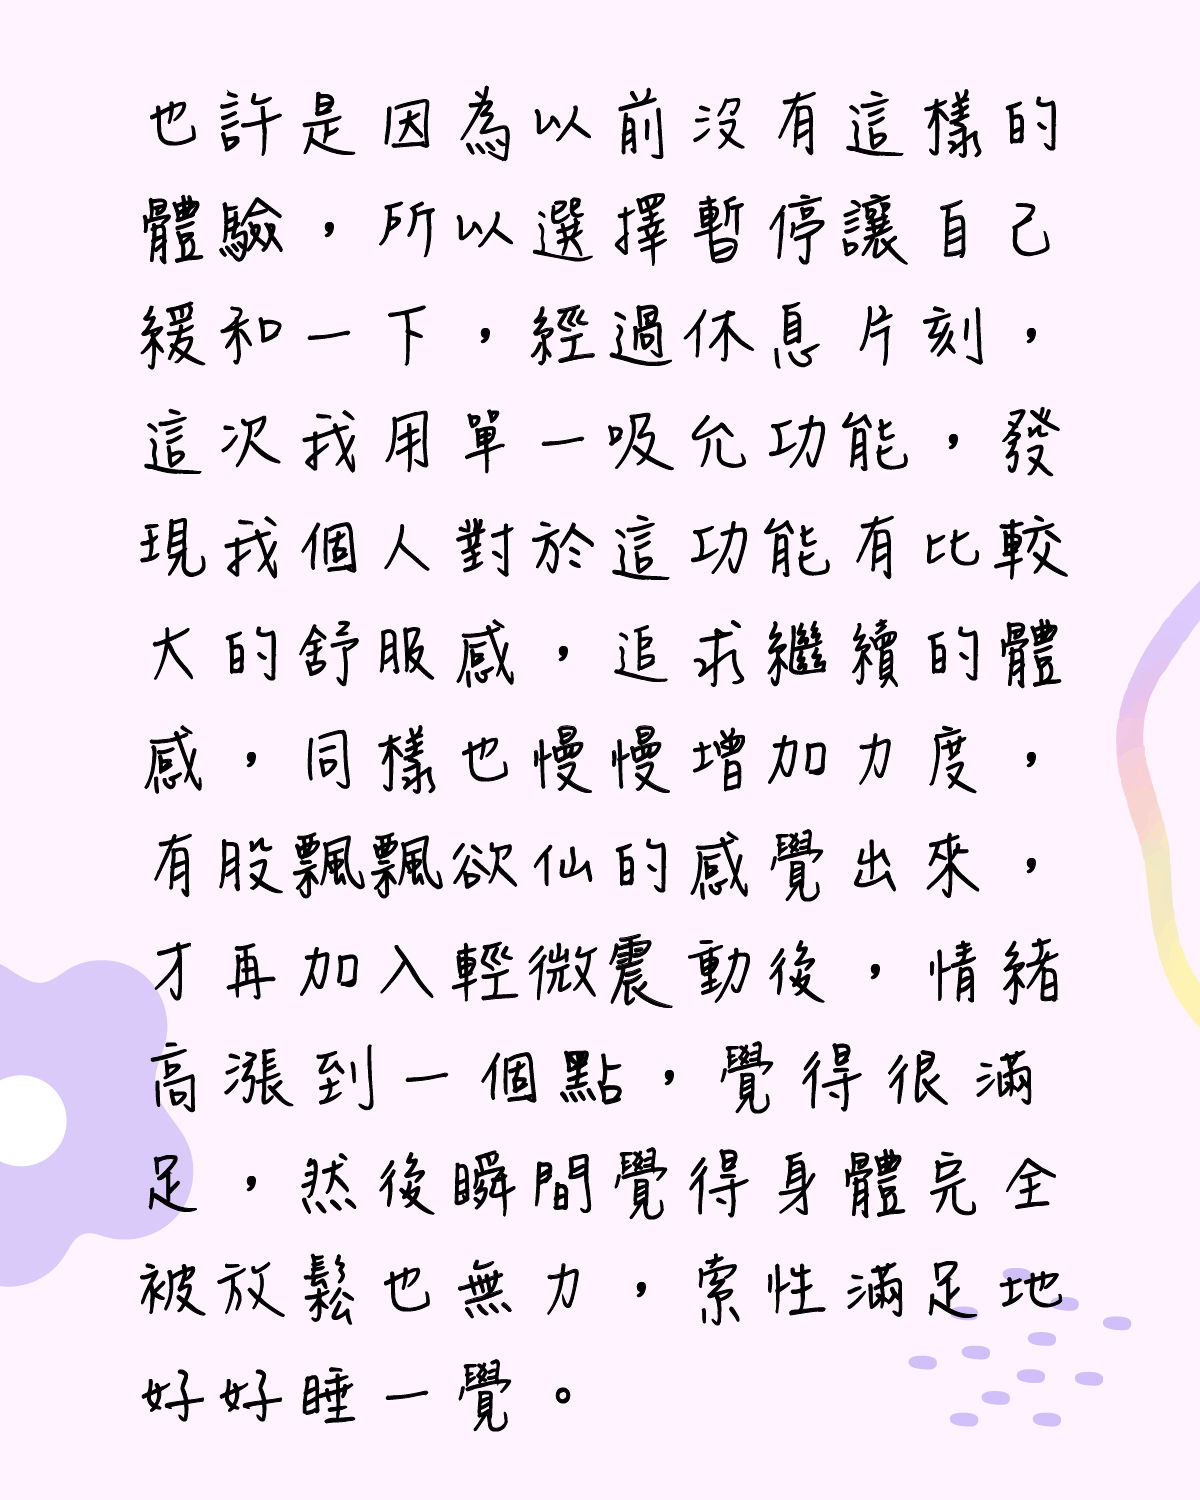 也許是因為以前沒有這樣的
體驗，所以選擇暫停讓自己
緩和一下，經過休息片刻，
這次我用單一吸允功能，發
現我個人對於這功能有比較
大的舒服感，追求繼續的體
感，同樣也慢慢增加力度，
有股飄飄欲仙的感覺出來，
才再加入輕微震動後，情緒
高漲到一個點，覺得很滿
足，然後瞬間覺得身體完全
被放鬆也無力，索性滿足地
好好睡一覺。